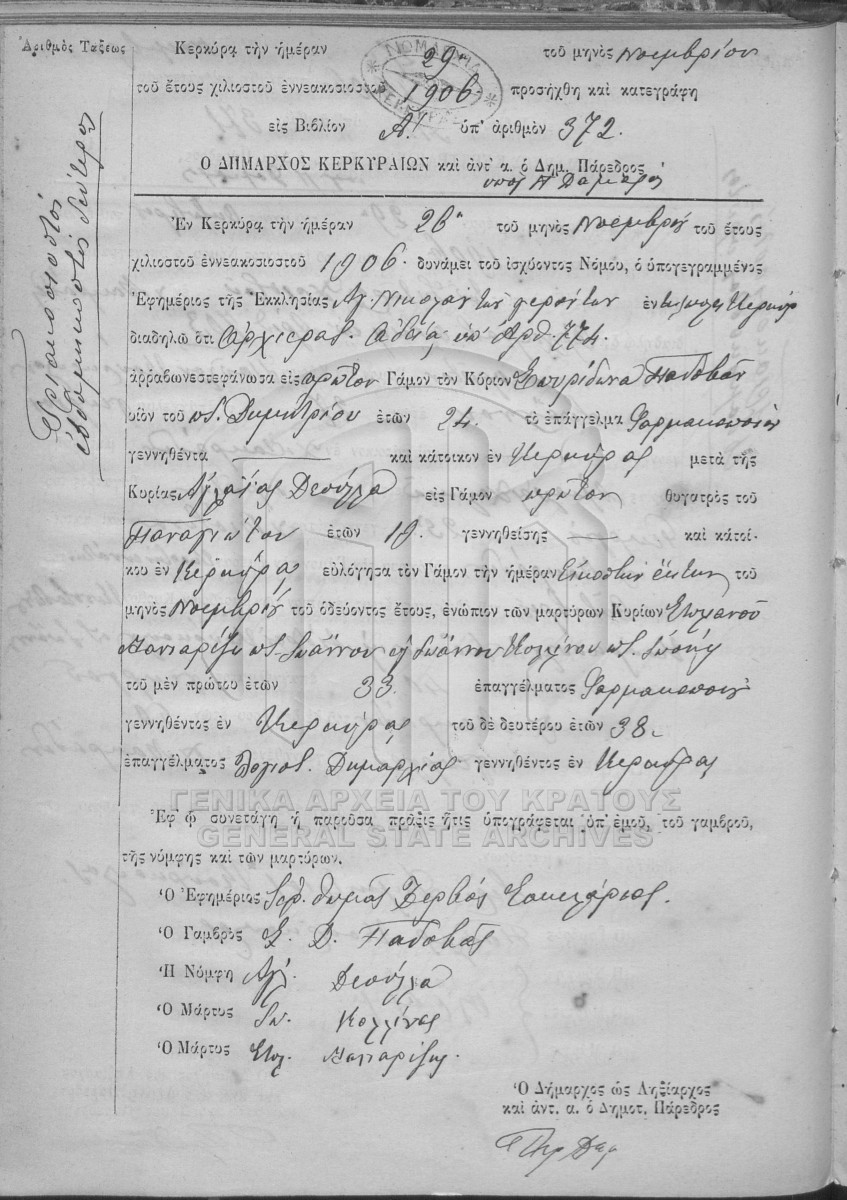 Ἀριθμὸς Τάξεως
Τριακοσιοστὸς
ἑβδομηκοστὸς δεύτερος
Κερκύρᾳ τὴν ἡμέραν 29η τοῦ μηνὸς Νοεμβρίου
τοῦ ἔτους χιλιοστοῦ ἐννεακοσιοστοῦ 1906 προσήχθη καὶ κατεγράφη
ΝΟΜΑΡΧΙΑ ΚΕΡΚΥΡΑΣ
εἰς Βιβλίον Α. ὑπ' ἀριθμὸν 372.
Ο ΔΗΜΑΡΧΟΣ ΚΕΡΚΥΡΑΙΩΝ καὶ ἀντ' α. ὁ Δημ. Πάρεδρος
Ἐν Κερκύρᾳ τὴν ἡμέραν 26η τοῦ μηνὸς Νοεμβρίου τοῦ ἔτους
χιλιοστοῦ ἐννεακοσιοστοῦ 1906. δυνάμει τοῦ ἰσχύοντος Νόμου, ὁ ὑπογεγραμμένος
Ἐφημέριος τῆς Ἐκκλησίας Αγ. Νικολάου των γερόντων ἐν
διαδηλῶ ὅτι Αρχιερατ. αδεία υπ' αρθ. 774.
ἀῤῥαβωνεστεφάνωσα εἰς πρῶτον Γάμον τὸν Κύριον Σπυρίδωνα Παδοβᾶν
υἱὸν τοῦ ποτ. Δημητρίου ἐτῶν 24. τὸ ἐπάγγελμα Φαρμακοποιὸν
γεννηθέντα καὶ κάτοικον ἐν Κερκύρας μετὰ τῆς
Κυρίας Αγλαΐας Δεπόλλα εἰς Γάμον πρῶτον θυγατρὸς τοῦ
Παναγιώτου ἐτῶν 19. γεννηθείσης καὶ κατοί-
κου ἐν Κερκύρας εὐλόγησα τὸν Γάμον τὴν ἡμέραν Εικοστὴν έκτην τοῦ
μηνὸς Νοεμβρίου τοῦ ὁδεύοντος ἔτους, ἐνώπιον τῶν μαρτύρων Κυρίων
ποτ. Ιωάννου Ιωάννου Κολλίνου ποτ.
τοῦ μὲν πρώτου ἐτῶν 33. ἐπαγγέλματος Φαρμακοποιοῦ
γεννηθέντος ἐν Κερκύρας τοῦ δὲ δευτέρου ἐτῶν 38.
ἐπαγγέλματος Λογιστ. Δημαρχίας γεννηθέντος ἐν Κερκύρας
ΓΕΝΙΚΑ ΑΡΧΕΙΑ ΤΟΥ ΚΡΑΤΟΥΣ
Ἐφ' ᾧ συνετάγη ἡ παροῦσα πρᾶξις ἥτις ὑπογράφεται ὑπ' ἐμοῦ, τοῦ γαμβροῦ,
GENERAL STATE ARCHIVES
τῆς νύμφης καὶ τῶν μαρτύρων.
Ὁ Ἐφημέριος Ιερ. Θωμᾶς Ζερβὸς Σακελάριος.
Ὁ Γαμβρὸς Σ. Δ. Παδοβᾶς
Ἡ Νύμφη Αγλ. Δεπόλλα
Ὁ Μάρτυς Ιω. Κολλίνος
Ὁ Μάρτυς
Ὁ Δήμαρχος ὡς Ληξίαρχος
καὶ ἀντ. α. ὁ Δημοτ. Πάρεδρος